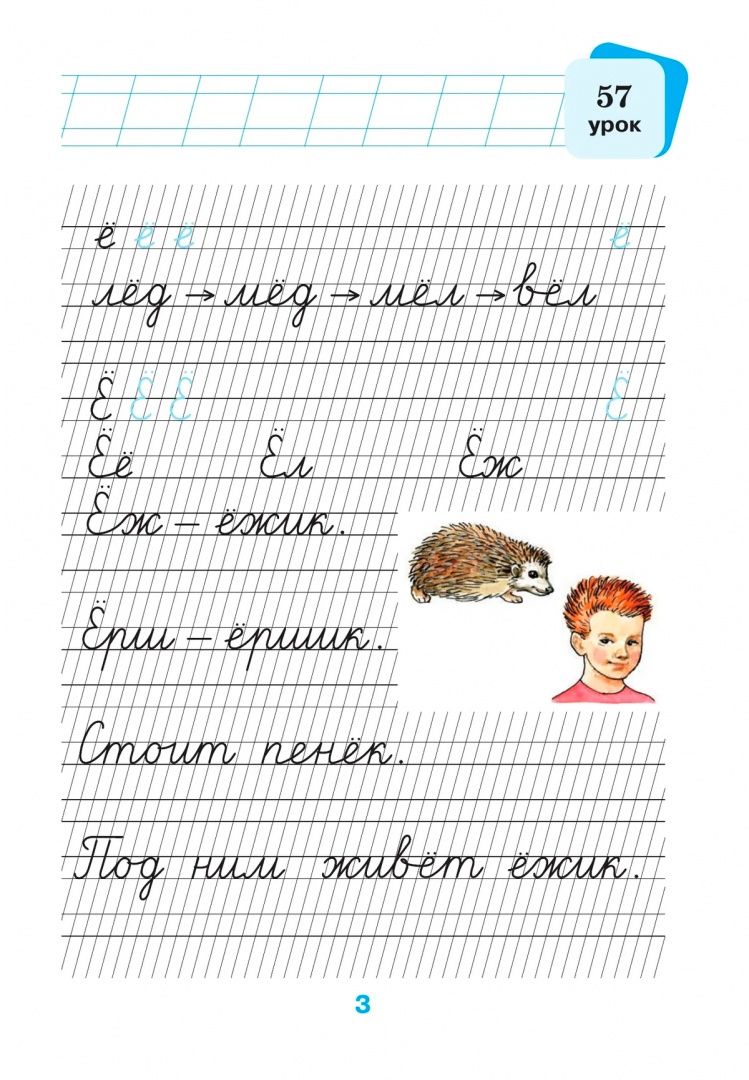 57
урок
ё ё ё ё
лёд → мёд → мёл → вёл
Ё Ё Ё Ё
Ёё Ёл Ёж
Ёж – ёжик.
Ёрш – ёршик.
Стоит пенёк.
Под ним живёт ёжик.
3